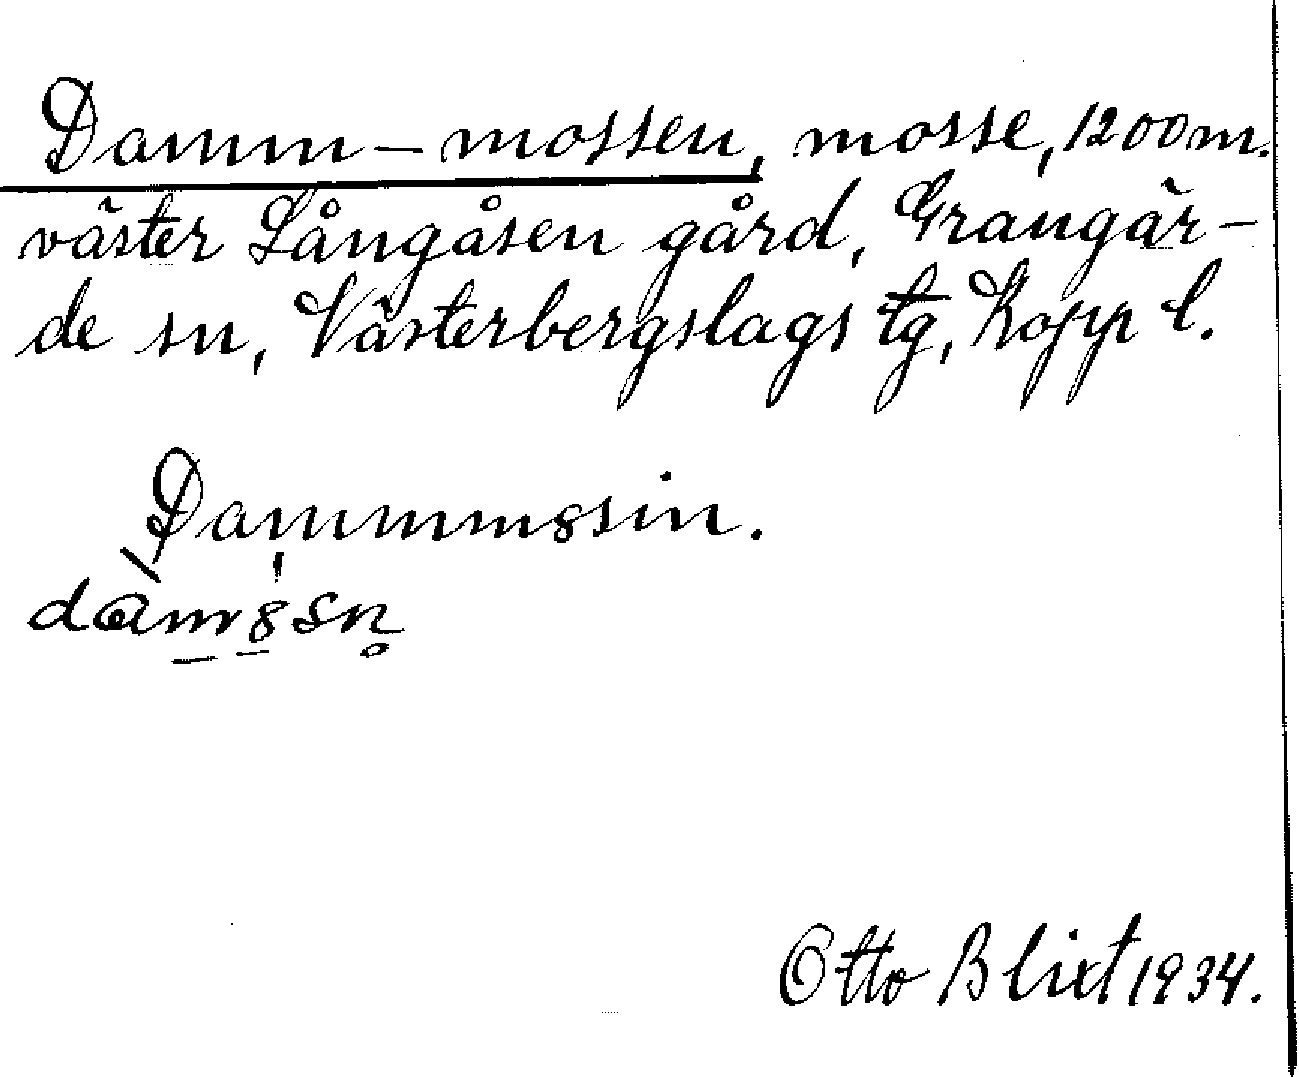 Damm-mossen, mosse, 1200 m.
väster Långåsen gård, Grangär-
de sn, Västerbergslags tg, Kopp l.
Dammm8sin.
dam8sn̥
Otto Blixt 1934.